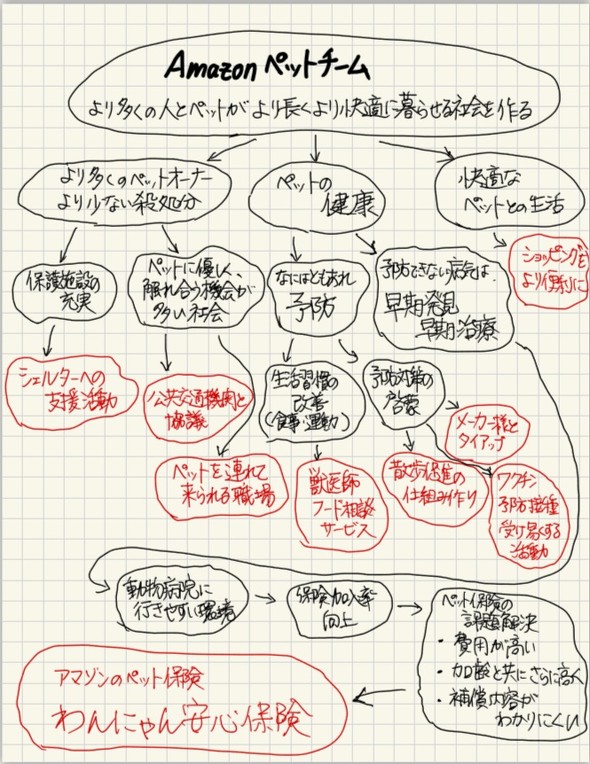 Amazon ペットチーム
より多くの人とペットがより長くより快適に暮らせる社会を作る
より多くのペットオーナー
より少ない殺処分
ペットの
健康
快適な
ペットとの生活
保護施設の
充実
ペットに優しく、
触れ合う機会が
多い社会
なにはともあれ
予防
予防できない病気は
早期発見
早期治療
ショッピングを
より便利に
シェルターへの
支援活動
公共交通機関と
協議
生活習慣の
改善
(食事・運動)
予防対策の
啓蒙
メーカー様と
タイアップ
ペットを連れて
来られる職場
獣医師
フード相談
サービス
散歩促進の
仕組み作り
ワクチン
予防接種
受け易くする
活動
動物病院に
行きやすい環境
保険加入率
向上
ペット保険の
課題解決
・費用が高い
・加齢と共にさらに高く
・補償内容が
わかりにくい
アマゾンのペット保険
わんにゃん安心保険